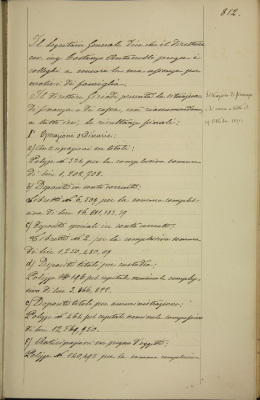 812.
Il Segretario Generale dice che il Direttore
cav. ing. Costanzo Cantoni prega i
colleghi a scusare la sua assenza per
motivi di famiglia.
Il Direttore presenta la situazione
di finanza e di cassa, con
a tutto ieri, le risultanze finali:
Situazione di finanza
e di cassa a tutto il
1° Operazioni ordinarie:
a) Anticipazioni su titoli:
Polizze N° 324 per la complessiva somma
di lire 1,202,708.
b) Depositi in conto corrente:
Libretti N° 6,339 per la somma comples-
siva di lire 16,011,183,29
c) Depositi speciali in conto corrente:
Libretti N° 2, per la complessiva somma
di lire 1,250,480,09
d) Depositi titoli per custodia:
Polizze N° 496 pel capitale nominale comples-
sivo di lire 3,866,822.
e) Depositi titoli per amministrazione:
Polizze N° 464 pel capitale nominale complessivo
di lire 12,749,950.
f) Anticipazioni su pegno d'oggetti:
Polizze N° 140,492 per la somma complessiva